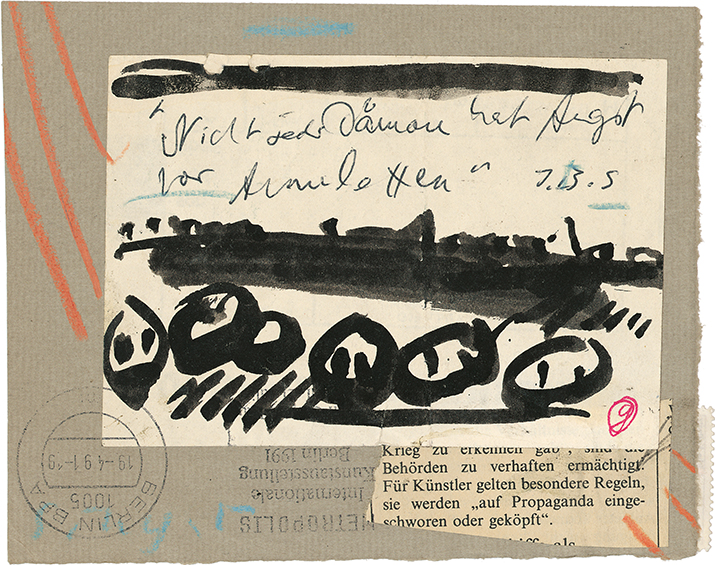 "Nicht jeder Dämon hat Angst
vor Amuletten"
9
Krieg zu erkennen gab", sind die
Behörden zu verhaften ermächtigt.
Für Künstler gelten besondere Regeln,
sie werden „auf Propaganda einge-
schworen oder geköpft“.
METROPOLIS
Internationale
Kunstausstellung
Berlin 1991
19-4.91-19
1005
BERLIN BPA